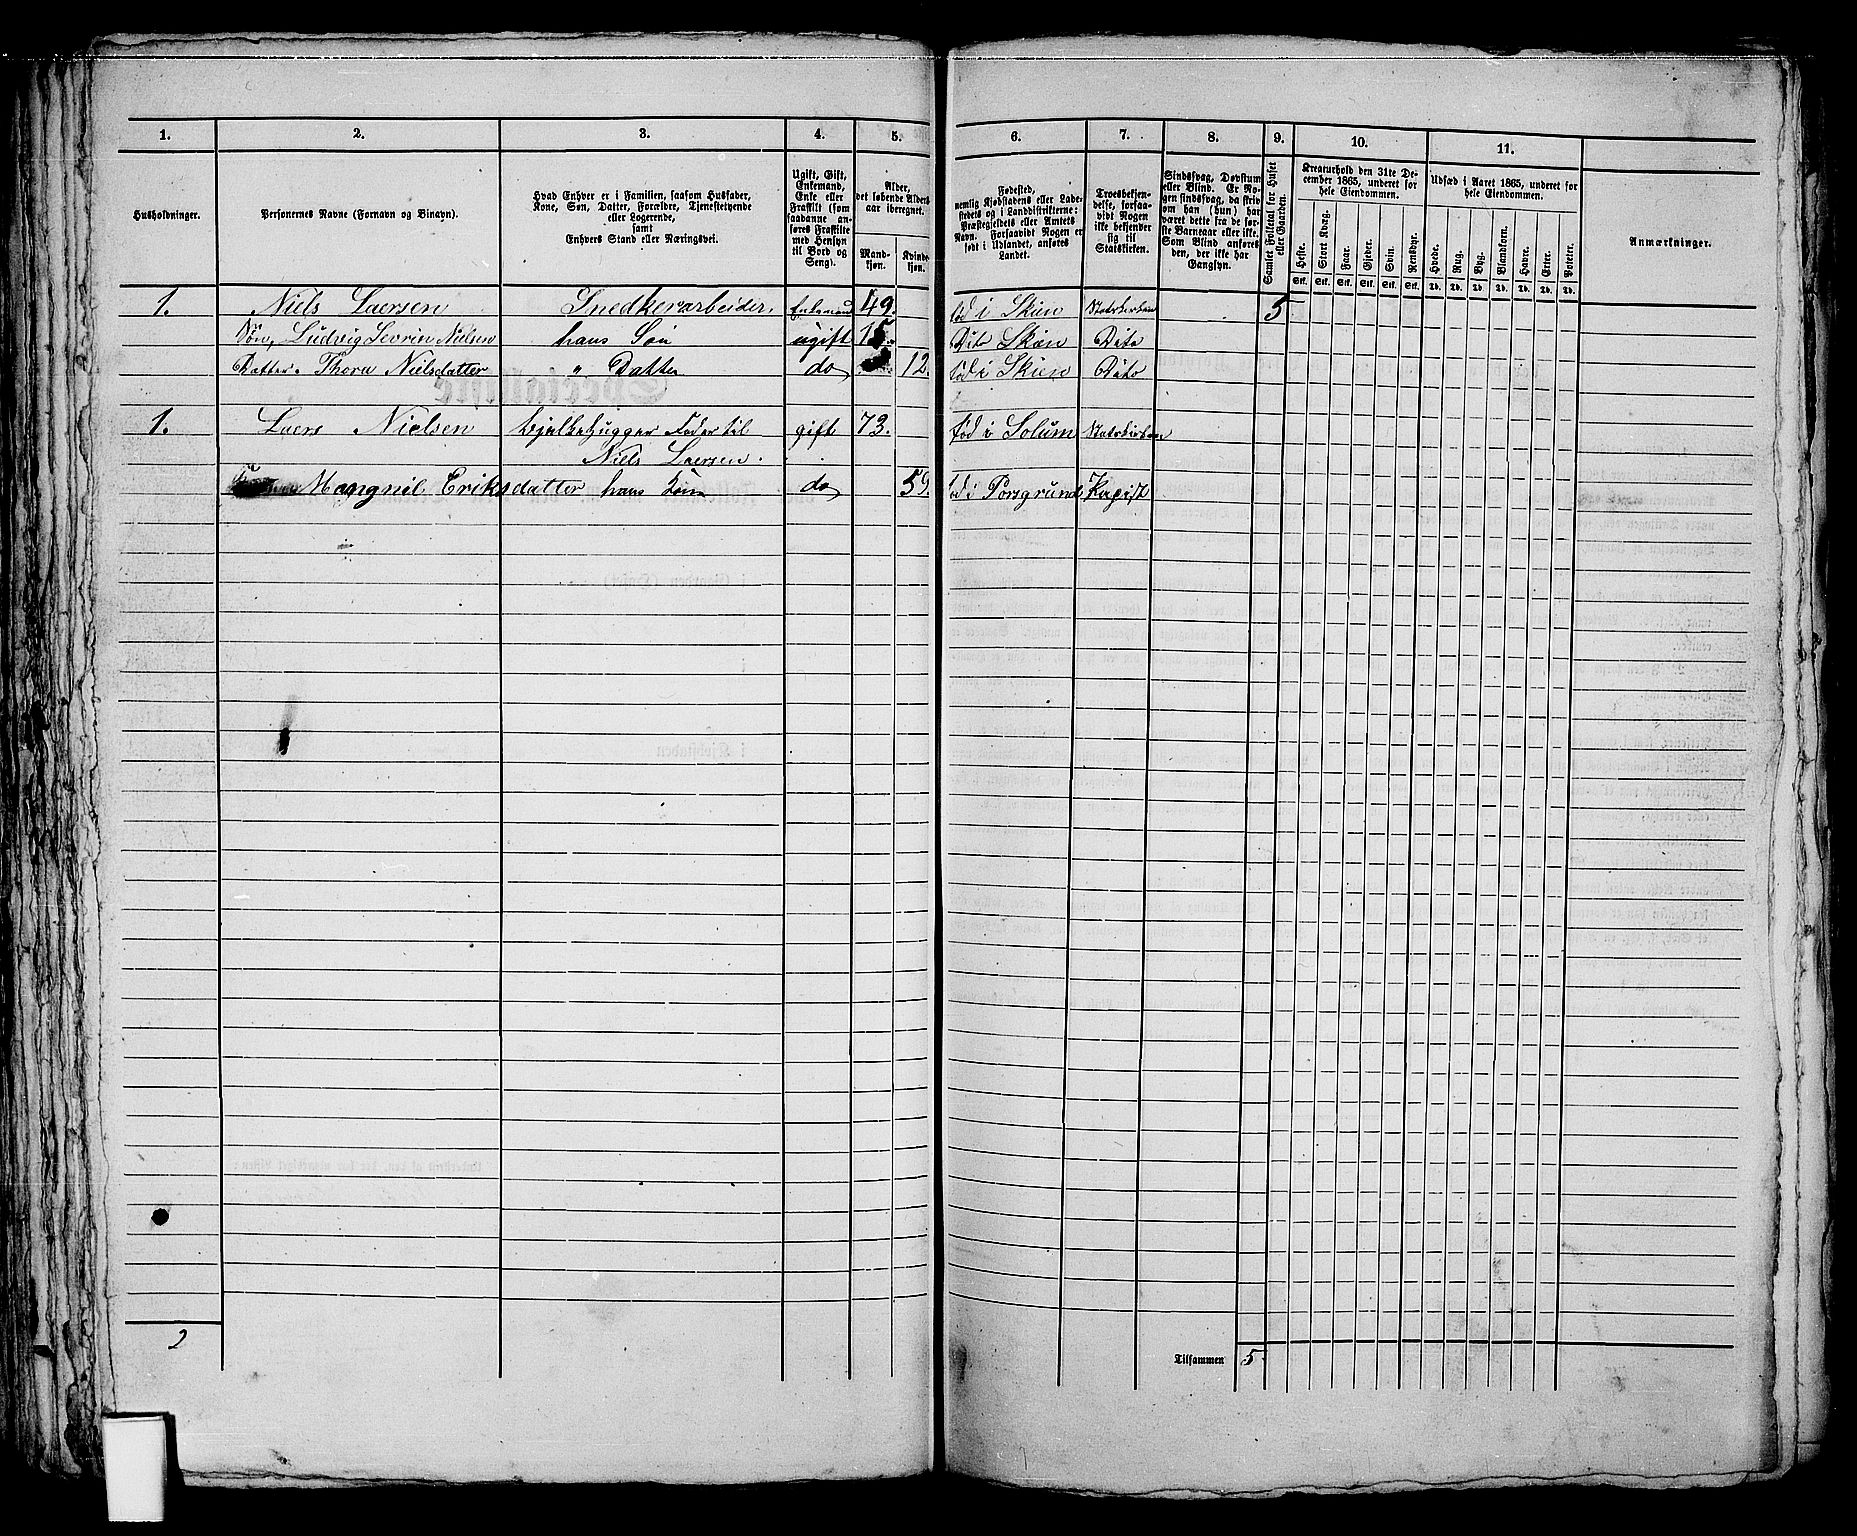 1. 2. 3. 4. 5. 6. 7. 8. 9. 10. 11.
Husholdninger.
Personernes Navne (Fornavn og Binavn).
Hvad Enhver er i Familien, saasom Husfader,
Kone, Søn, Datter, Forældre, Tjenestetyende
eller Logerende,
samt
Enhvers Stand eller Næringsvei.
Ugift, Gift,
Enkemand,
Enke eller
Fraskilt (som
saadanne an-
føres Fraskilte
med Hensyn
til Bord og
Seng).
Alder,
det løbende Alders-
aar iberegnet.
Mand-
kjøn.
Kvinde-
kjøn.
Fødested,
nemlig Kjøbstadens eller Lade-
stedets og i Landdistrikterne:
Præstegjeldets eller Amtets
Navn. Forsaavidt Nogen er
født i Udlandet, anføres
Landet.
Troesbekjen-
delse, forsaa-
vidt Nogen
ikke bekjender
sig til
Statskirken.
Sindssvag, Døvstum
eller Blind. Er No-
gen sindssvag, da skriv
om han (hun) har
været dette fra de før-
ste Barneaar eller ikke.
Som Blind anføres
den, der ikke har
Gangsyn.
Samlet Folketal for Huset
eller Gaarden.
Kreaturhold den 31te De-
cember 1865, underet for
hele Eiendommen.
Heste. Stort Kvæg. Faar. Gjeder. Svin. Rensdyr.
Stk. Stk. Stk. Stk. Stk. Stk.
Udsæd i Aaret 1865, underet for
hele Eiendommen.
Hvede. Rug. Byg. Blandkorn. Havre. Erter. Poteter.
Td. Td. Td. Td. Td. Td. Td.
Anmærkninger.
1. Niels Laersen Snedkerarbeider, Enkemand 49. fød i Skien Statskirken 5
Søn, Ludvig Sevrin Nielsen hans Søn ugift 15. Dito Skien Dito
Datter. Thora Nielsdatter " Datter do 12. fød i Skien Dito
1. Laers Nielsen bjelkehugger Fader til gift 73. fød i Solum Statskirken
Niels Laersen.
Mangnil Eriksdatter hans Kone do 59. fød i Porsgrund
2
Tilsammen 5.